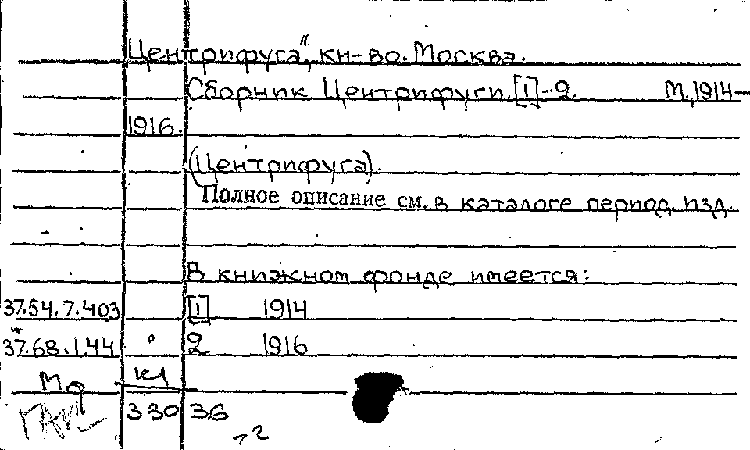 Центрифуга", кн-во. Москва.
Сборник Центрифуги. [1]-2. М, 1914-
1916.
(Центрифуга).
Полное описание см. в каталоге период. изд.
В книжном фонде имеется:
37.54.7.403 [1] 1914
37.68.1.44 2 1916
330 36